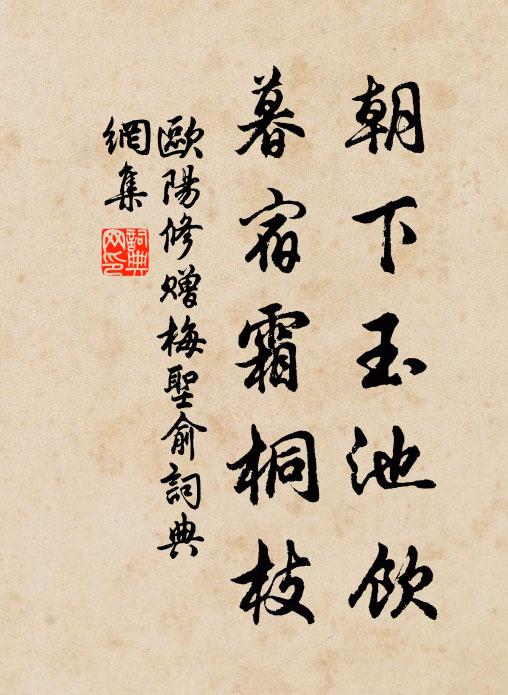 朝下玉池飲
暮宿霜桐枝
歐陽修贈梅聖俞詞典
網集
詞典
网印